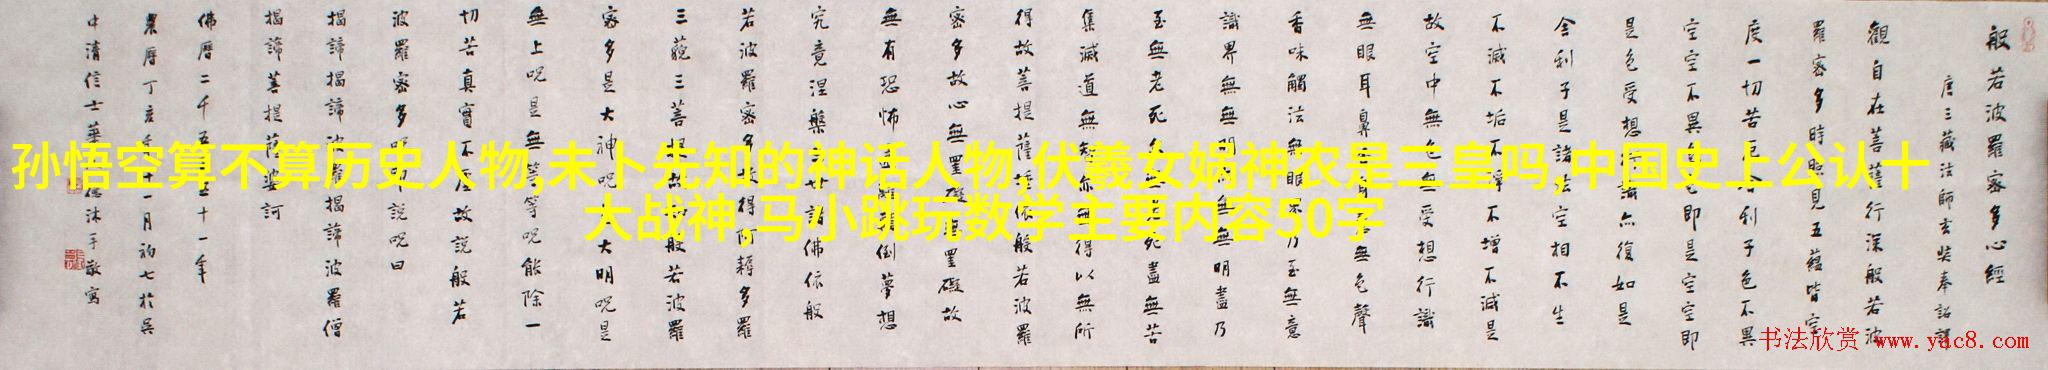 孙悟空算不算历史人物,未卜先知的神话人物,伏羲女娲神农是三皇吗,中国史上公认十
大战神,马小跳玩数学主要内容50字
般若波羅密多心經
唐三藏法師玄奘奉詔譯
觀自在菩薩行深般若波
羅密多時照見五蘊皆空
度一切苦厄舍利子色不異
空空不異色色即是空空即
是色受想行識亦復如是
舍利子是諸法空相不生
不滅不垢不淨不增不減是
故空中無色無受想行識
無眼耳鼻舌身意無色聲
香味觸法無眼界乃至無意
識界無無明亦無無明盡乃
至無老死亦無老死盡無苦
集滅道無智亦無得以無所
得故菩提薩埵依般若波羅
密多故心無罣礙無罣礙故
無有恐怖遠離顛倒夢想
究竟涅槃三世諸佛依般
若波羅密多故得阿耨多羅
三藐三菩提故知般若波羅
密多是大神呪是大明呪是
無上呪是無等等呪能除一
切苦真實不虛故說般若
波羅密多呪即說呪曰
揭諦揭諦波羅揭諦波羅僧
揭諦菩提薩婆訶
佛曆二千五百五十一年
農曆丁亥年十一月初七於吳
中清信士華沐手敬寫
书法欣赏 www.yac8.com